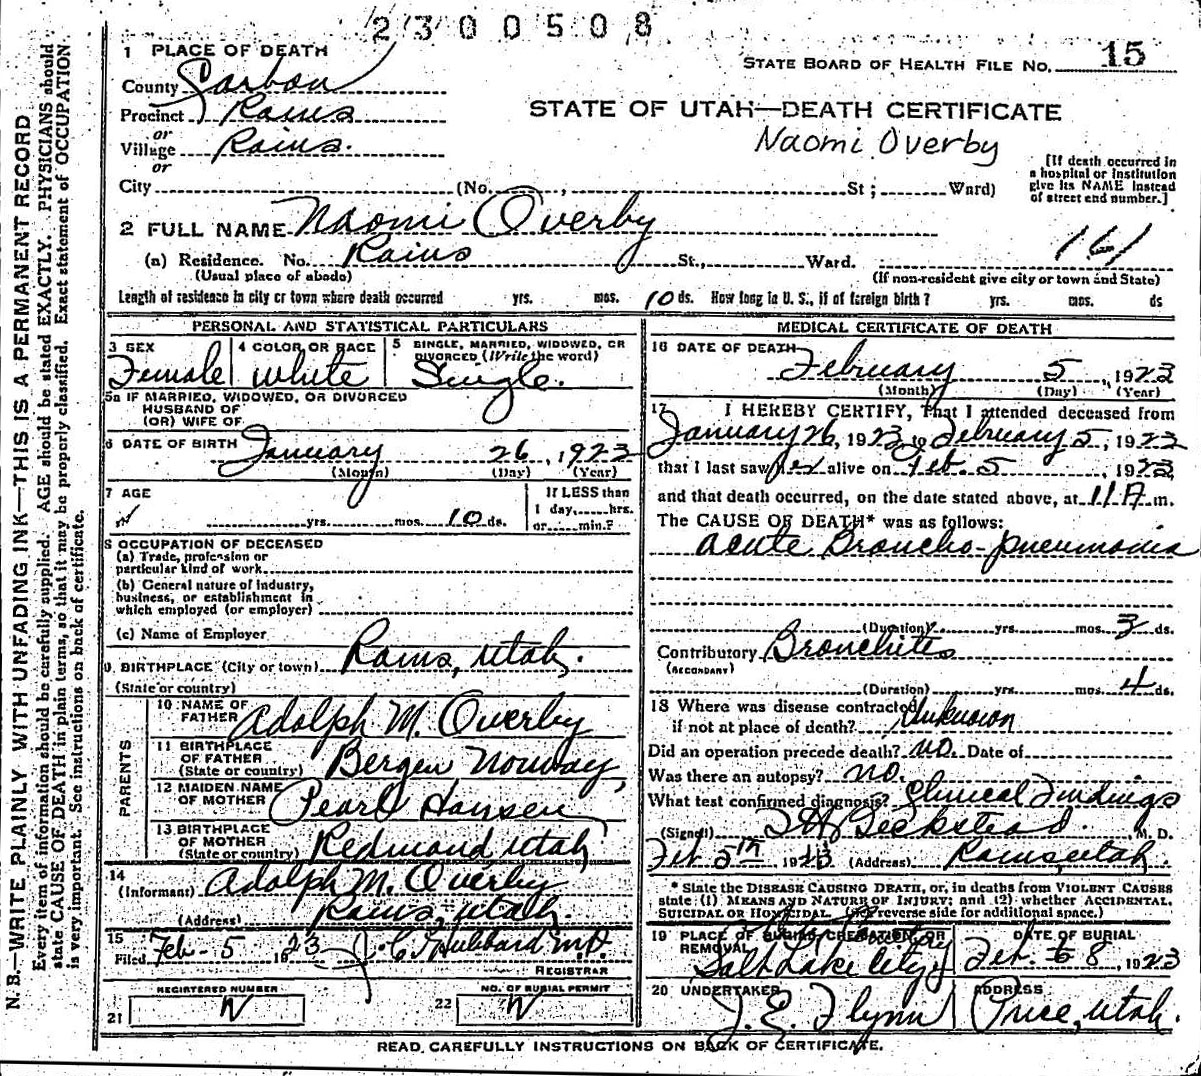 2300508
1 PLACE OF DEATH
STATE BOARD OF HEALTH FILE NO. 15
County Carbon
Precinct Rains
STATE OF UTAH—DEATH CERTIFICATE
or
Village Rains.
Naomi Overby
or
City (No. , St; Ward)
[If death occurred in
a hospital or institution
give its NAME instead
of street end number.]
2 FULL NAME Naomi Overby
161
(a) Residence. No. Rains St., Ward.
(Usual place of abode)
(If non-resident give city or town and State)
Length of residence in city or town where death occurred yrs. mos. 10 ds. How long in U. S., if of foreign birth? yrs. mos. ds
PERSONAL AND STATISTICAL PARTICULARS
3 SEX
Female
4 COLOR OR RACE
White
5 SINGLE, MARRIED, WIDOWED, OR
DIVORCED (Write the word)
Single.
5a IF MARRIED, WIDOWED, OR DIVORCED
HUSBAND OF
(OR) WIFE OF
6 DATE OF BIRTH January 26, 1923
(Month) (Day) (Year)
7 AGE
yrs. mos. 10 ds.
If LESS than
1 day, hrs.
or min.?
8 OCCUPATION OF DECEASED
(a) Trade, profession or
particular kind of work
(b) General nature of industry,
business, or establishment in
which employed (or employer)
(c) Name of Employer
9. BIRTHPLACE (City or town) Rains, Utah.
(State or country)
PARENTS
10 NAME OF
FATHER Adolph M. Overby
11 BIRTHPLACE
OF FATHER
(State or country) Bergen Norway,
12 MAIDEN NAME
OF MOTHER Pearl Hansen
13 BIRTHPLACE
OF MOTHER
(State or country) Redmond Utah,
14
(Informant) Adolph M. Overby
(Address) Rains, Utah.
15
Filed Feb - 5 1923 J. C. Hubbard M.D.
REGISTRAR
REGISTERED NUMBER
21 N
NO. OF BURIAL PERMIT
22 N
MEDICAL CERTIFICATE OF DEATH
16 DATE OF DEATH
February 5, 1923
(Month) (Day) (Year)
17 I HEREBY CERTIFY, That I attended deceased from
January 26, 1923 to February 5, 1923
that I last saw her alive on Feb. 5, 1923,
and that death occurred, on the date stated above, at 11 A m.
The CAUSE OF DEATH* was as follows:
acute Broncho-pneumonia
(Duration) yrs. mos. 3 ds.
Contributory Bronchitis
(SECONDARY)
(Duration) yrs. mos. 4 ds.
18 Where was disease contracted
if not at place of death? Unknown
Did an operation precede death? no. Date of
Was there an autopsy? no.
What test confirmed diagnosis? Clinical Findings
(Signed) Beckstead. M. D.
Feb 5th 1923 (Address) Rains, Utah.
* State the DISEASE CAUSING DEATH, or, in deaths from VIOLENT CAUSES
state (1) MEANS AND NATURE OF INJURY; and (2) whether ACCIDENTAL,
SUICIDAL OR HOMICIDAL. (See reverse side for additional space.)
19 PLACE OF BURIAL, CREMATION, OR
REMOVAL
Salt Lake City
DATE OF BURIAL
Feb. 8, 1923
20 UNDERTAKER
J. E. Flynn
ADDRESS
Price, Utah.
READ CAREFULLY INSTRUCTIONS ON BACK OF CERTIFICATE.
N. B.—WRITE PLAINLY WITH UNFADING INK—THIS IS A PERMANENT RECORD
Every item of information should be carefully supplied. AGE should be stated EXACTLY. PHYSICIANS should
state CAUSE OF DEATH in plain terms, so that it may be properly classified. Exact statement of OCCUPATION
is very important. See instructions on back of certificate.